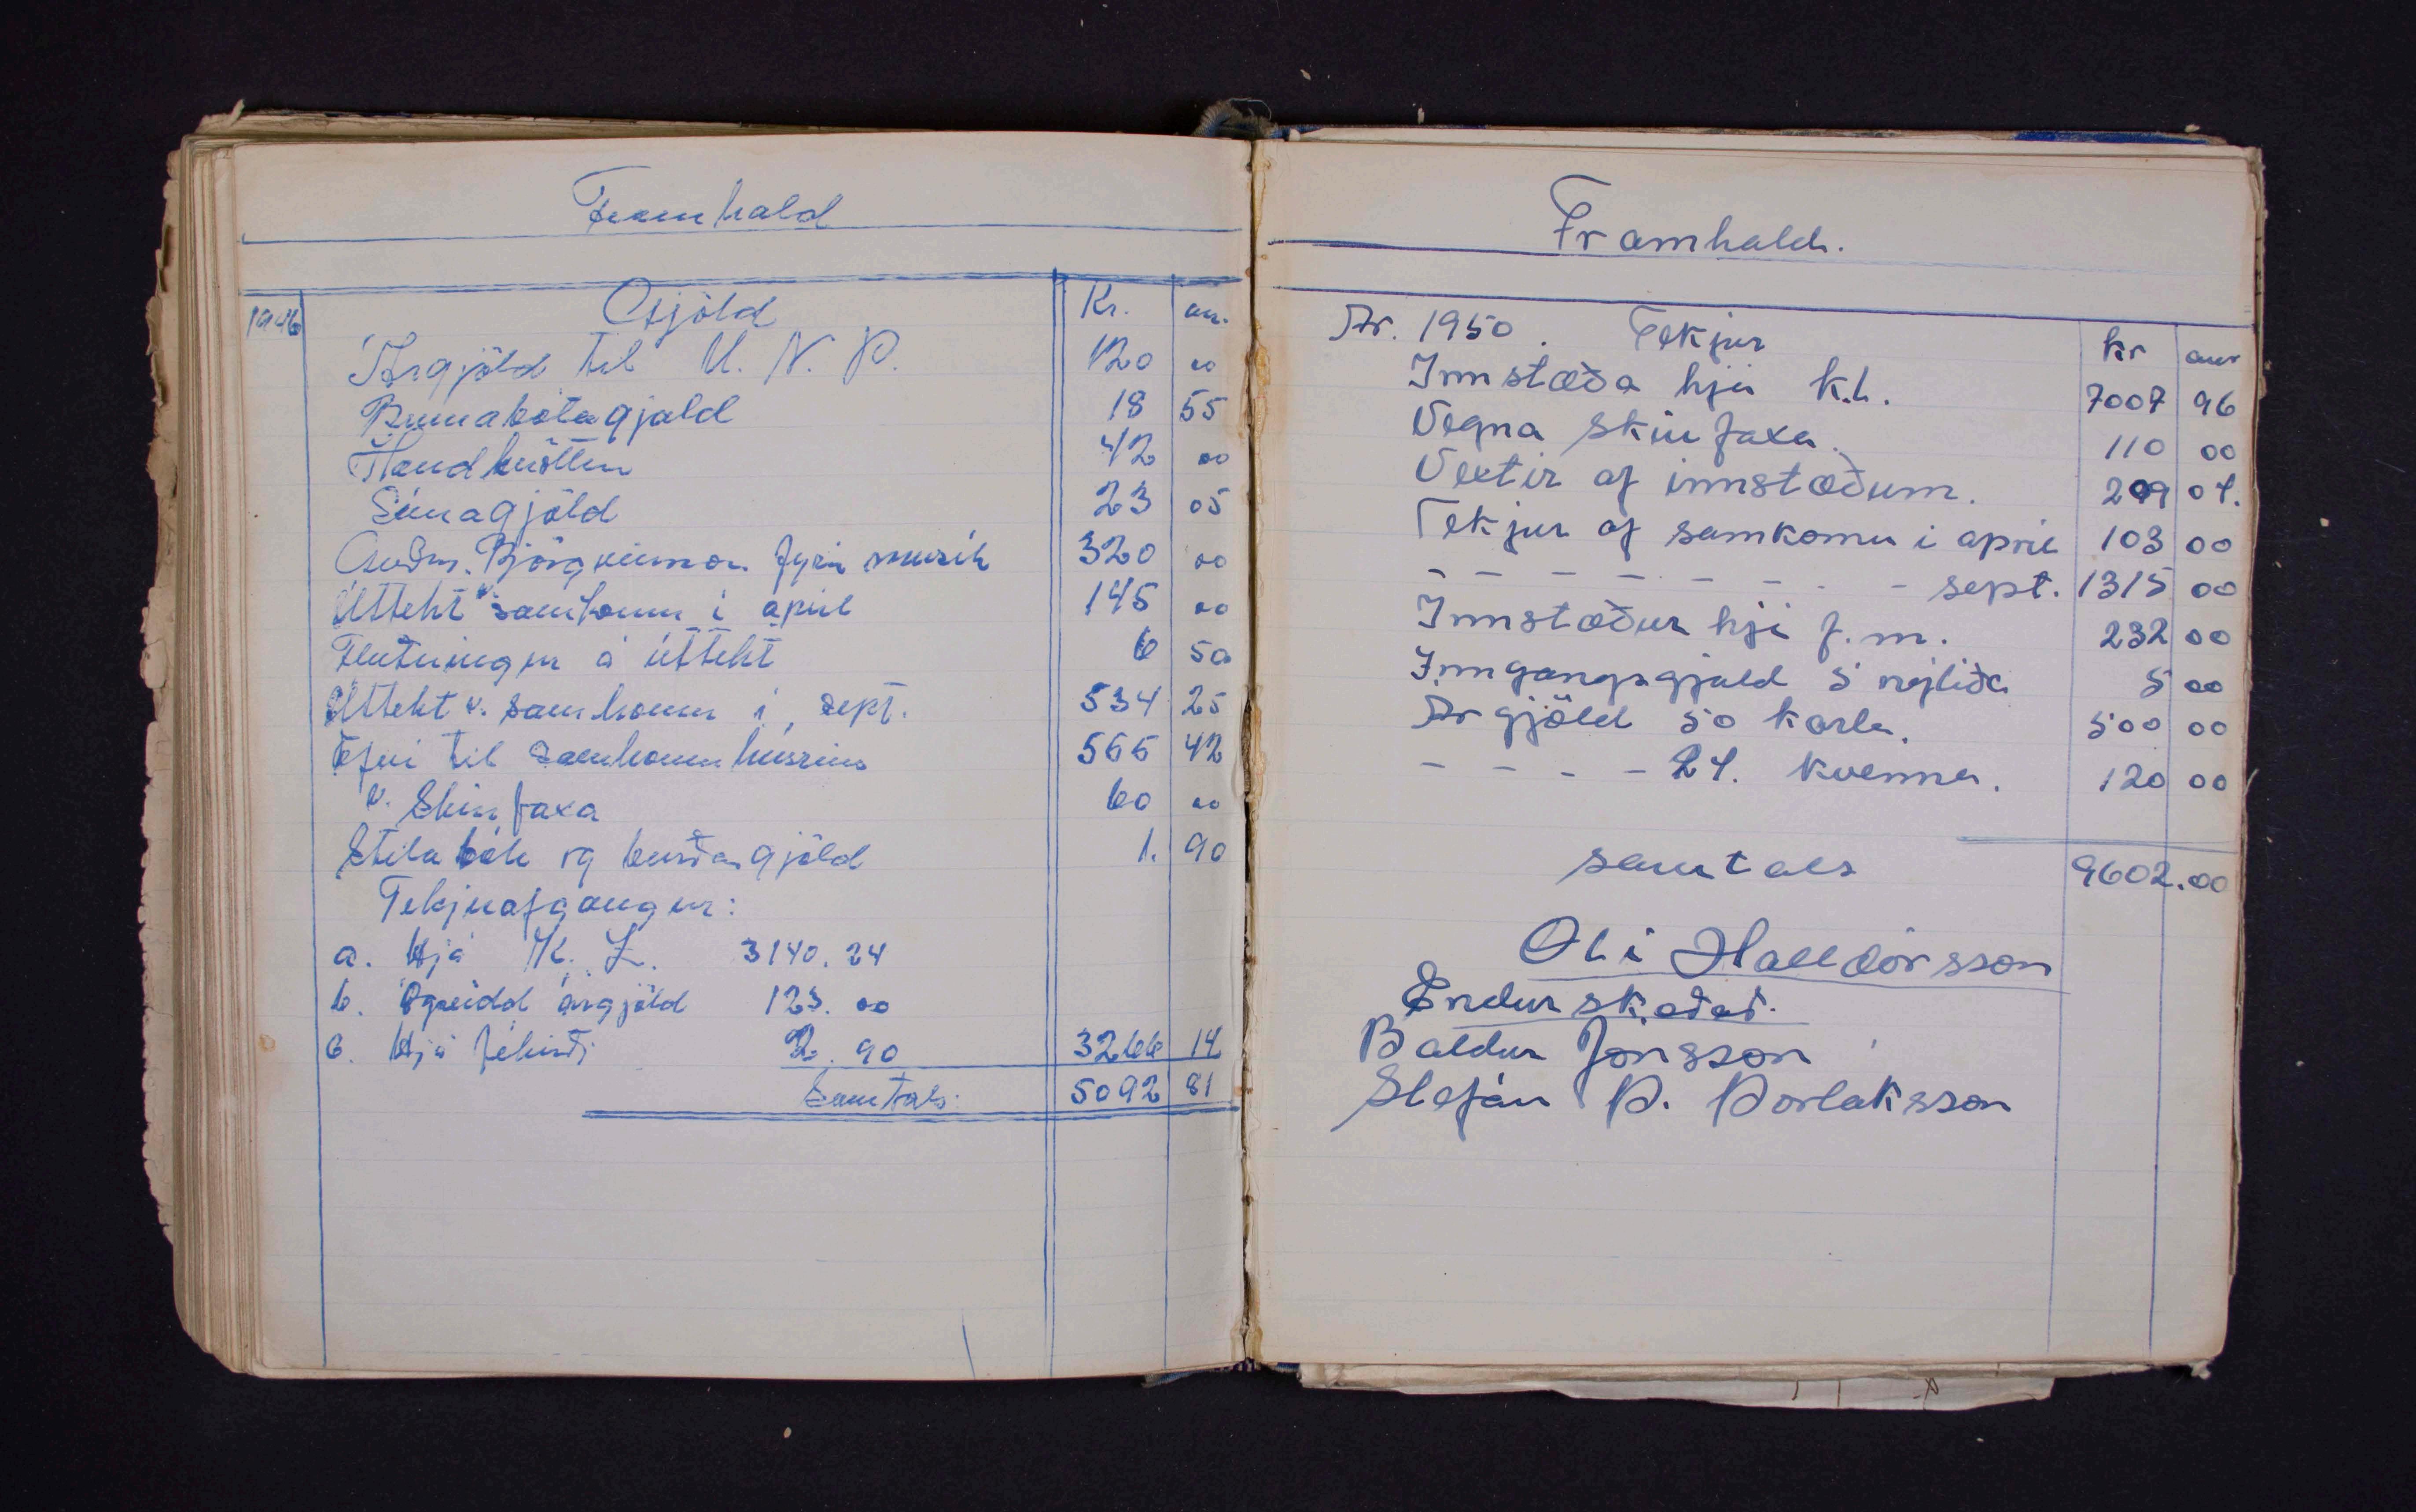 Framhald
1946 Gjöld Kr. au.
Árgjöld til U. N. Þ. 120 00
Brunabótagjald 18 55
Handknöttur 42 00
Símagjöld 23 05
Guðm. Björgvinsson fyrir músik 320 00
Úttekt v. samkomu í apríl 145 00
Flutningur á úttekt 6 50
Úttekt v. samkomu í sept. 534 25
Efni til samkomuhússins 565 42
v. Skinfaxa 60 00
Stílabók og burðargjöld 1. 90
Tekjuafgangur:
a. Hjá K. L. 3140. 24
b. Ógreidd árgjöld 123. 00
c. Hjá féhirði 2. 90 3266 14
Samtals: 5092 81
Framhald.
Ár. 1950. Tekjur kr aur
Innstæða hjá K.L. 7007 96
Vegna skinfaxa. 110 00
Vextir af innstæðum. 209 04.
Tekjur af samkomu í apríl 103 00
- - - - - - - - sept. 1315 00
Innstæður hjá f.m. 232 00
Inngangsgjald 5 nýliða 5 00
Árgjöld 50 karla. 500 00
- - - - 24. kvenna. 120 00
samtals 9602.00
Óli Halldórsson
Endurskoðað.
Baldur Jónsson
Stefán Þ. Þorláksson